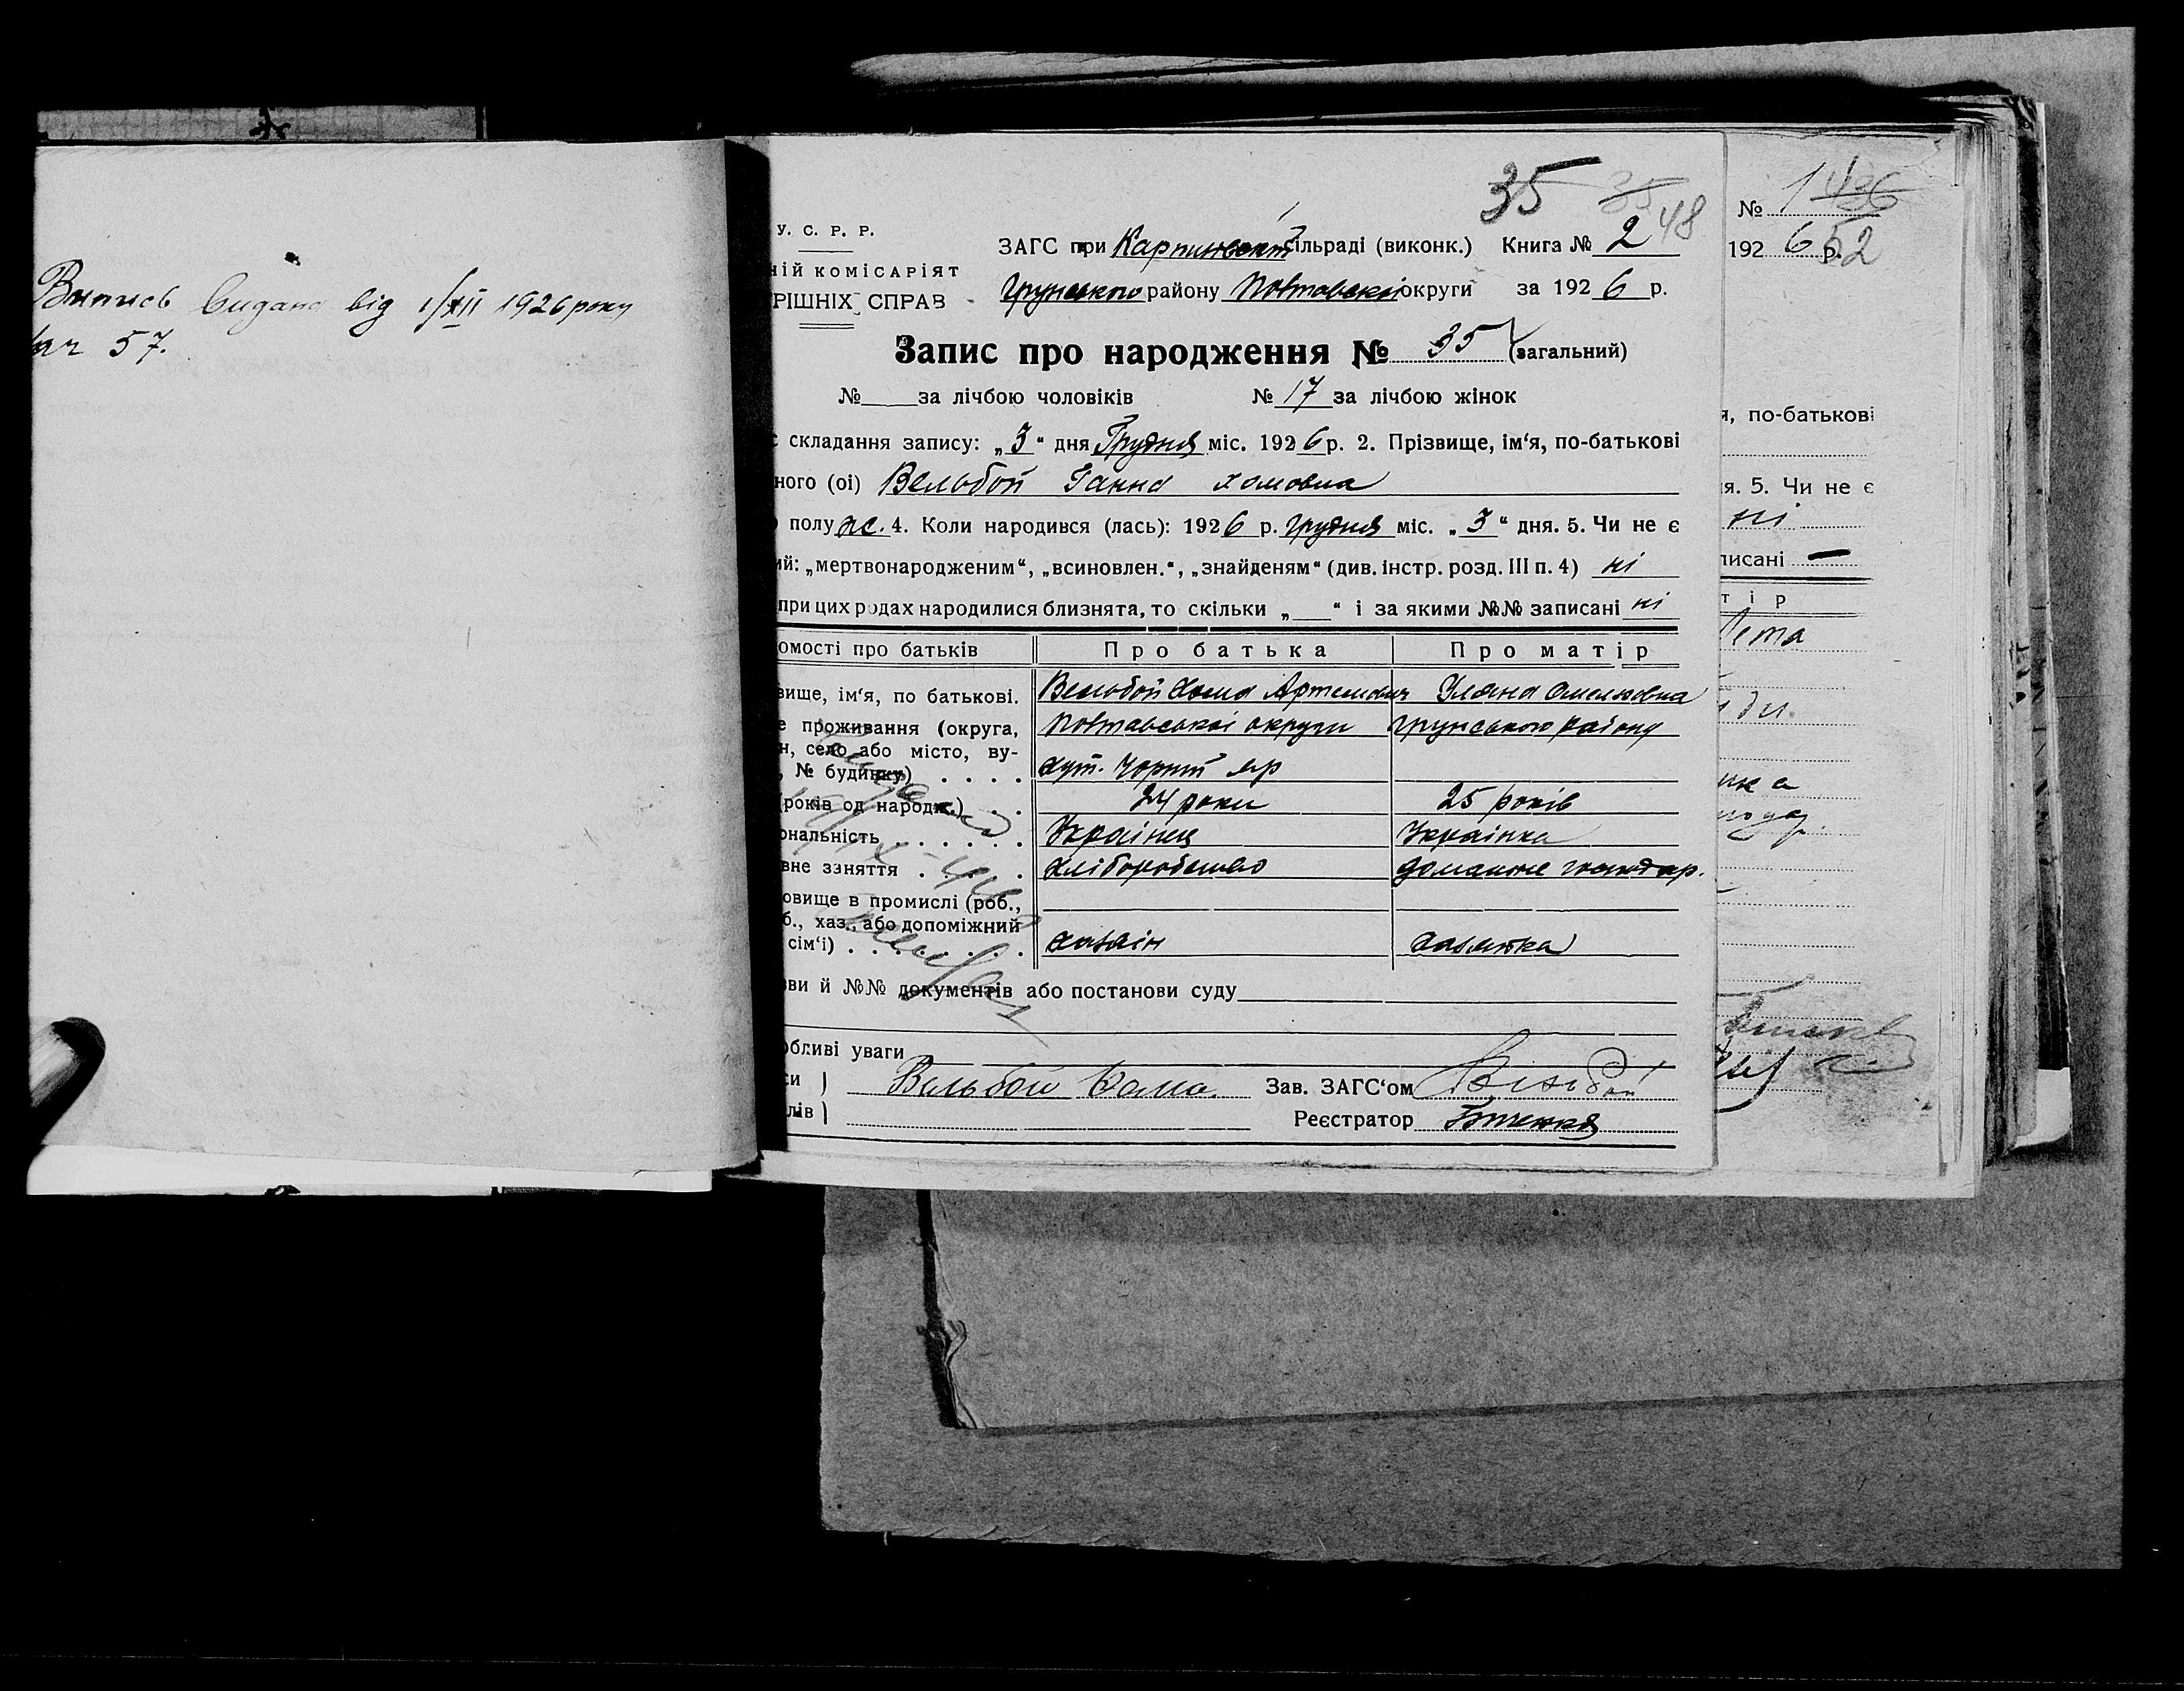 Випись видана від 1/XII 1926 року
57.
35 35 48
У. С. Р. Р.
ній КОМІСАРІЯТ
РІШНІХ СПРАВ
ЗАГС при Карпинській сільраді (виконк.) Книга № 2
Грунського району Полтавської округи за 1926 р.
Запис про народження № 35 (загальний)
№ за лічбою чоловіків № 17 за лічбою жінок
с складання запису: „3“ дня Грудня міс. 1926 р. 2. Прізвище, ім‘я, по-батькові
ного (ої) Вельбой Ганна Хомовна
полу ж. 4. Коли народився (лась): 1926 р. Грудня міс. „3“ дня. 5. Чи не є
ий: „мертвонародженим“, „всиновлен.“, „знайденям“ (див. інстр. розд. III п. 4) ні
при цих родах народилися близнята, то скільки „ “ і за якими №№ записані ні
омості про батьків Про батька Про матір
вище, ім‘я, по батькові. Вельбой Хома Артемович Уляна Омельковна
е проживання (округа, Полтавської округи Грунського району
н, село або місто, ву-
, № будинку) . . . . хут. Чорний яр
(років од народж.) . . 24 роки 25 років
ональність . . . . . . Українець Українка
вне заняття . . . . . хліборобство домашнє господар.
овище в промислі (роб.,
б., хаз., або допоміжний
сім‘ї) . . . . . . . . хазаїн хазяйка
ови й №№ документів або постанови суду
обливі уваги
си ) Вельбой Хома. Зав. ЗАГС‘ом Вельбой
лів ) Реєстратор
№ 1 436
1926 р. 52
я, по-батькові
я. 5. Чи не є
ні
писані —
т і р